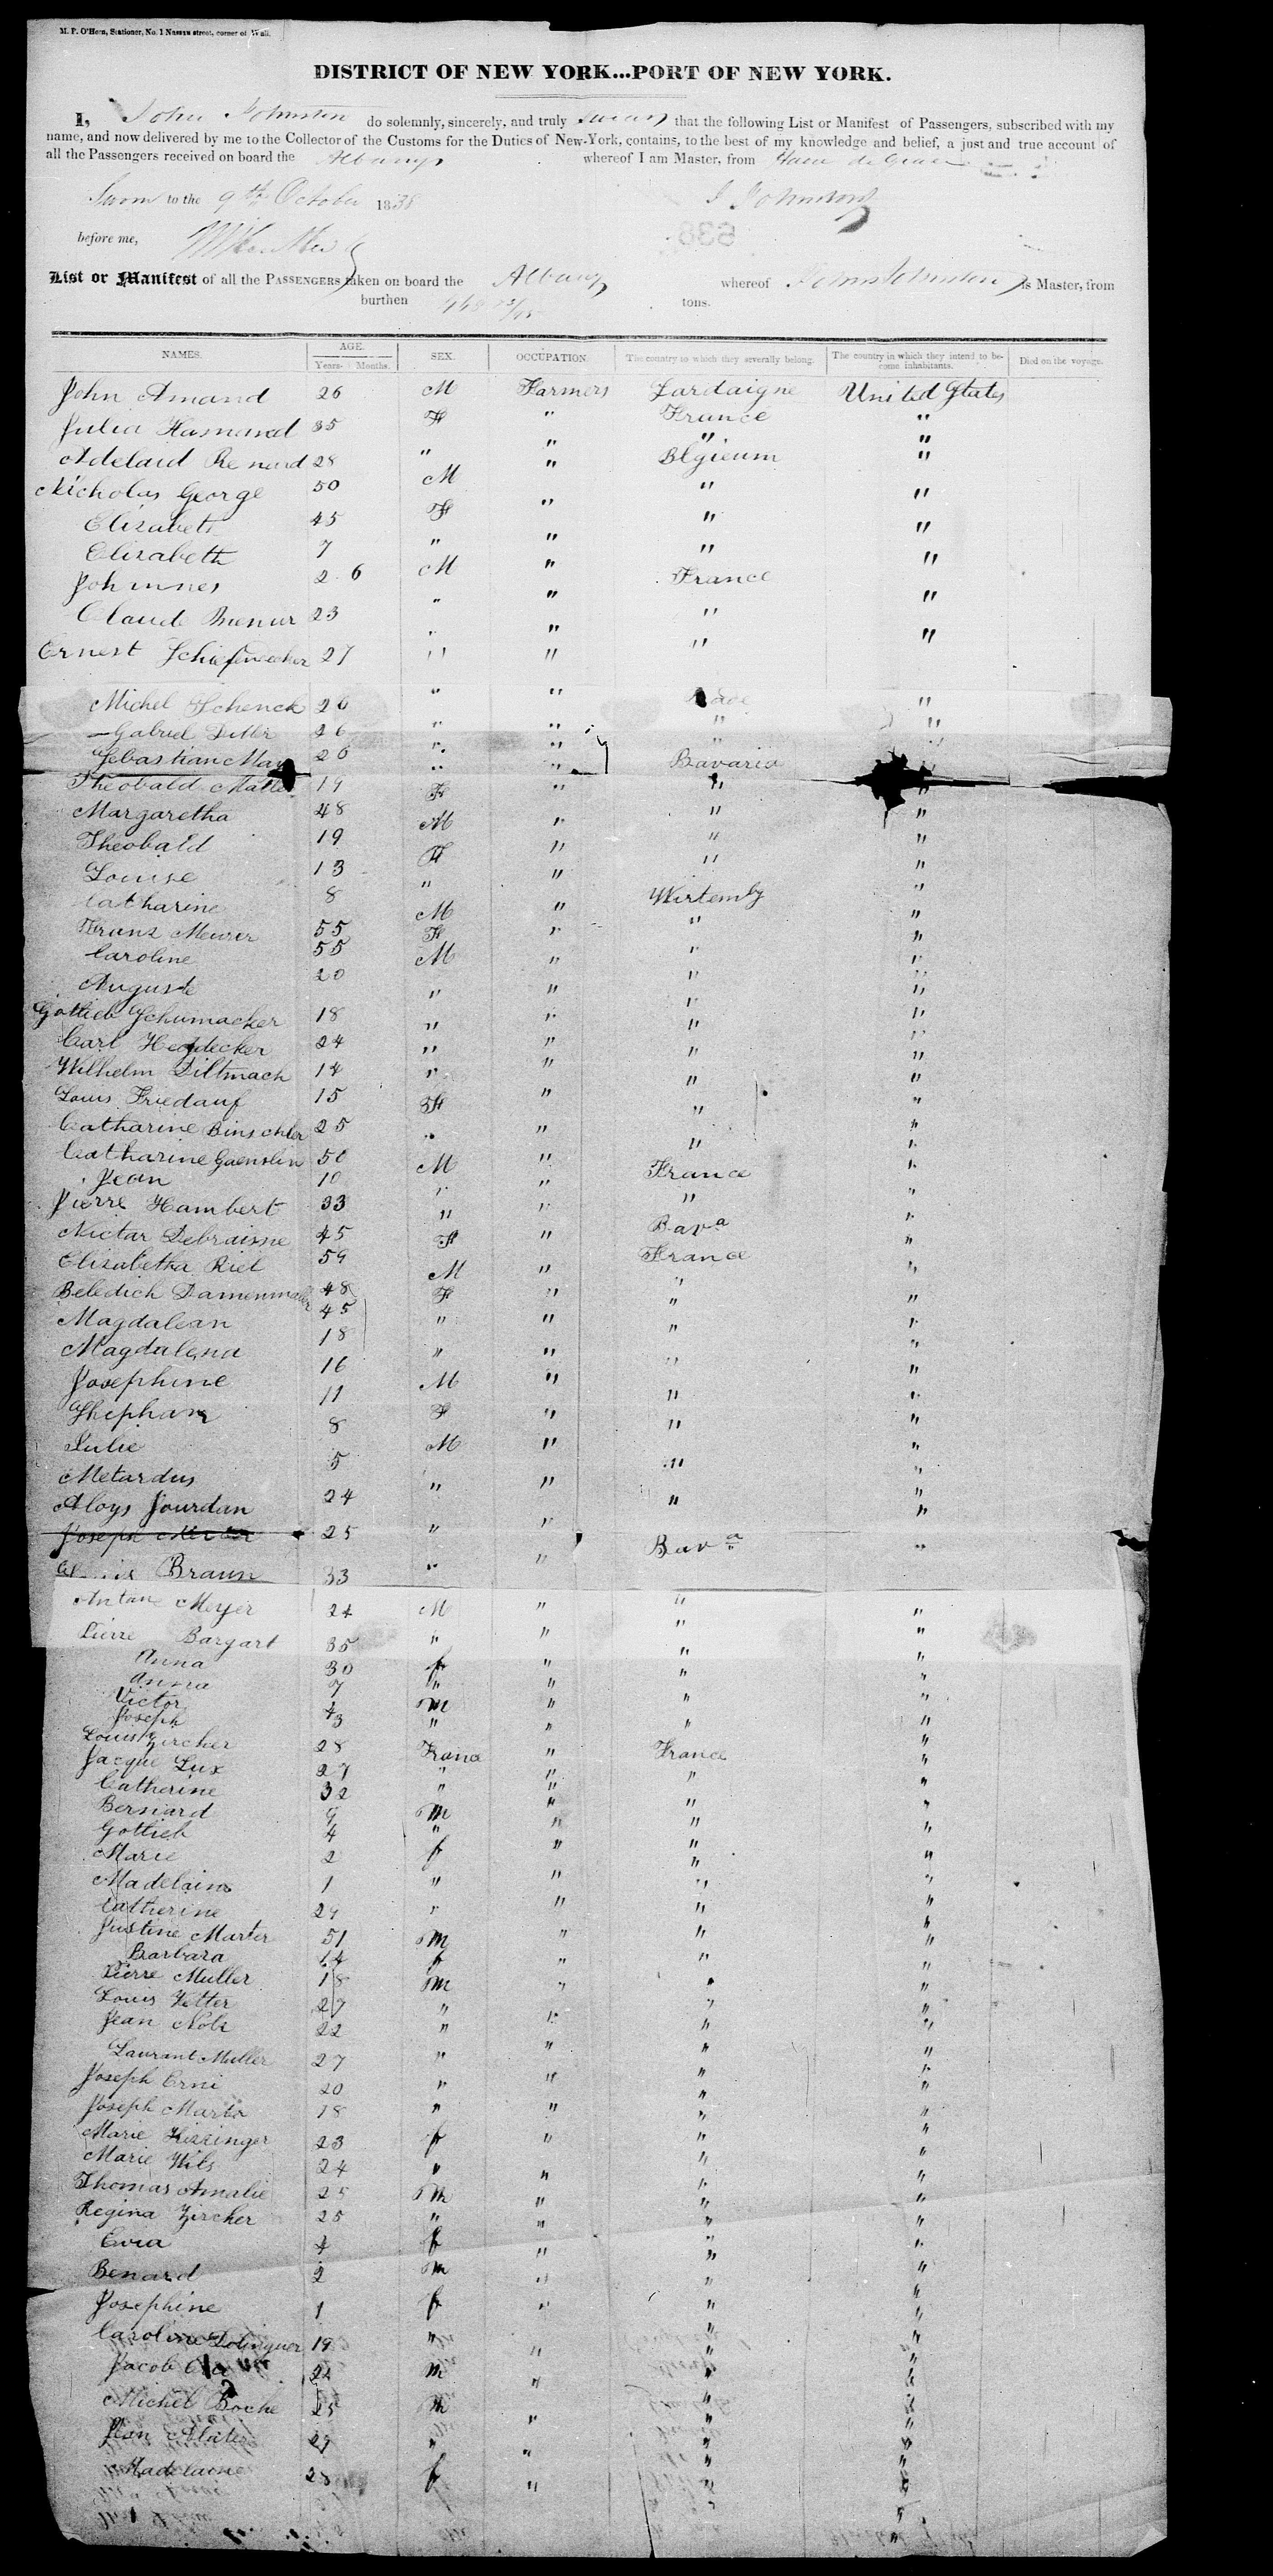 M. P. O'Hern, Stationer, No. 1 Nassau street, corner of Wall.
DISTRICT OF NEW YORK...PORT OF NEW YORK.
I, John Johnston do solemnly, sincerely, and truly swear that the following List or Manifest of Passengers, subscribed with my
name, and now delivered by me to the Collector of the Customs for the Duties of New-York, contains, to the best of my knowledge and belief, a just and true account of
all the Passengers received on board the Albany whereof I am Master, from Havre de Grace
Sworn to the 9th October 1838 J Johnston
before me,
List or Manifest of all the PASSENGERS taken on board the Albany whereof John Johnston is Master, from
burthen 468 tons.
NAMES. AGE. Years. Months. SEX. OCCUPATION. The country to which they severally belong. The country in which they intend to become inhabitants. Died on the voyage.
John Amand 26 M Farmers Sardaigne United States
Julia Hasmand 35 F " France "
Adelaid Renard 28 " " " "
Nicholas George 50 M " Blgieum "
Elizabeth 45 F " " "
Elizabeth 7 " " " "
Johannes 2 6 M " " "
Claude 23 " " France "
Ernest 27 " " " "
Michel Schenck 26 " " Bade "
Gabriel 26 " " " "
Sebastian May 26 " " " "
Theobald Matter 19 " " Bavaria "
Margaretha 48 F " " "
Theobald 19 M " " "
Louise 13 F " " "
Catharine 8 " " " "
Franz Meurer 55 M " Wirtembg "
Caroline 55 F " " "
Auguste 20 M " " "
Gottlieb Schumacker 18 " " " "
Carl 24 " " " "
Wilhelm Diltmach 14 " " " "
Louis Friedauf 15 " " " "
Catharine Binschler 25 F " " "
Catharine Gaenslin 50 " " " "
Jean 10 M " " "
Pierre Hambert 33 " " France "
Nictar Debraisne 45 " " " "
Elisabetha Riel 59 F " Bava "
Beledich 48 M " France "
Magdalean 45 F " " "
Magdalena 18 " " " "
Josephine 16 " " " "
Shephan 11 M " " "
Julie 8 F " " "
Metardus 5 M " " "
Aloys Jourdan 24 " " " "
Joseph 25 " " " "
Braun 33 " " Bava "
Antone Meyer 24 M " " "
Pierre Bargart 35 " " " "
Anna 30 f " " "
Anna 7 " " " "
Victor 4 m " " "
Joseph 3 " " " "
Louis Zircher 28 Franc " France "
Jacque Lux 27 " " " "
Catherine 32 " " " "
Bernard 9 m " " "
Gottlieb 4 " " " "
Marie 2 f " " "
Madelaine 1 " " " "
Catherine 24 " " " "
Justine Marter 51 m " " "
Barbara 14 f " " "
Pierre Muller 18 m " " "
Louis Vetter 27 " " " "
Jean 22 " " " "
Laurant Muller 27 " " " "
Joseph Erni 20 " " " "
Joseph Marta 18 " " " "
Marie Hissinger 23 f " " "
Marie Wils 24 " " " "
Thomas Amalie 25 m " " "
Regina Zircher 25 " " " "
Eva 4 f " " "
Benard 2 m " " "
Josephine 1 f " " "
Caroline Dolinguer 19 " " " "
Jacob 22 m " " "
Michel Boche 25 m " " "
Jean Mater 29 " " " "
Madelaine 28 f " " "